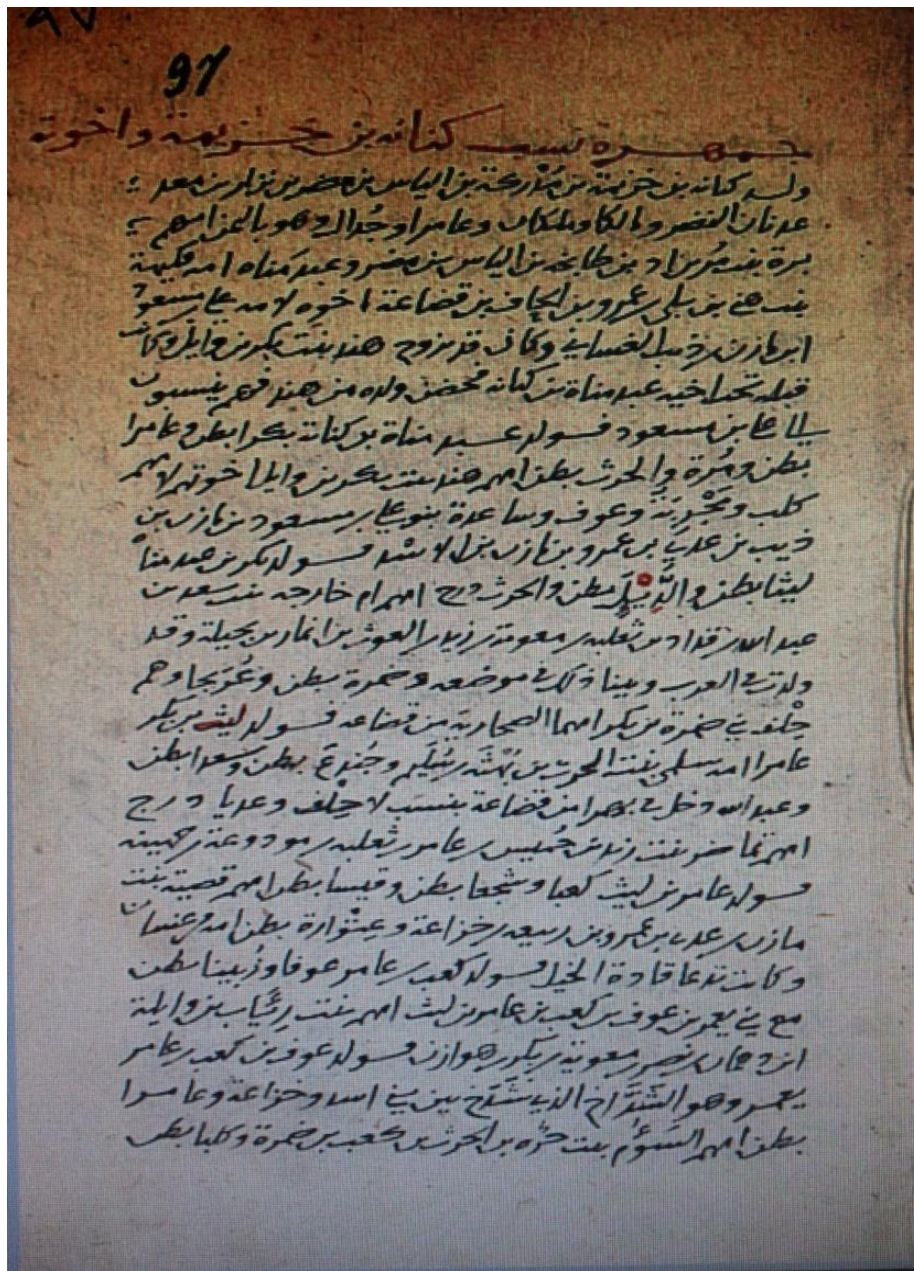 ٩٧
97
جمهرة نسب كنانه بن خزيمة واخوته
ولد كنانه بن خزيمة بن مدركة بن الياس بن مضر بن نزار بن معد بن
عدنان النضر ومالكا وملكان وعامرا
برة بنت مر بن اد بن طابخه بن الياس بن مضر وعبد مناه امه فكيهة
بنت هني بن بلي بن عمرو بن الحاف بن قضاعة اخوه لامه علي بن مسعود
ابن مازن بن ذيب الغساني وكان قد تزوج هند بنت بكر بن وايل وكانت
قبله تحت اخيه عبد مناة بن كنانه فحضن ولده من هند فهم ينسبون
الى علي بن مسعود فــولد عبد مناة بن كنانة بكرا بطن وعامرا
بطن ومُرة والحرث بطن امهم هند بنت بكر بن وايل اخوتهم لامهم
كلب وعوف وساعدة بنو علي بن مسعود بن مازن بن
ذيب بن عدي بن عمرو بن مازن بن الاسد فــولد بكر بن عبد مناة
ليثا بطن والدِّيْلَ بطن والحرث درج امهم ام خارجه بنت سعد بن
عبد الله بن قداد بن ثعلبه بن معوية بن زيد بن الغوث بن انمار من بجيلة وقد
ولدت في العرب وبينا ذلك في موضعه وضمرة بطن وعُرَيجا وهم
حِلْف في ضمرة بن بكر امهما الصحارية من قضاعه فــولد ليث بن بكر
عامرا امه سلمى بنت الحرث بن بُهْثَه بن سُلَيم وجُندَع بطن وسعدا بطن
وعبد الله دخل في بهرا من قضاعة بنسب لا حِلْف وعديا درج
امهم تماضر بنت زيد بن حُميس بن عامر بن ثعلبه بن مودوعة بن جهينة
فــولد عامر بن ليث كعبا وشجعا بطن وقيسا بطن امهم بنت
مازن بن عدي بن عمرو بن ربيعه بن خزاعة وعِتْوارة بطن امه من غسان
وكانت تدعا قادة الخيل فــولد كعب بن عامر عوفا وزُبينا بطن
مع بني يعمر بن عوف بن كعب بن عامر بن ليث امهم بنت رِئَاب بن وايلة
ابن دهمان بن نصر بن معوية بن بكر بن هوازن فــولد عوف بن كعب بن عامر
يعمر وهو الشَّدَّاخ الذي شَدَخ بين بني اسد وخزاعة وعامرا
بطن امهم السَّؤُم بنت حرّه بن الحرث بن كعب بن ضمرة وكلبا بطن